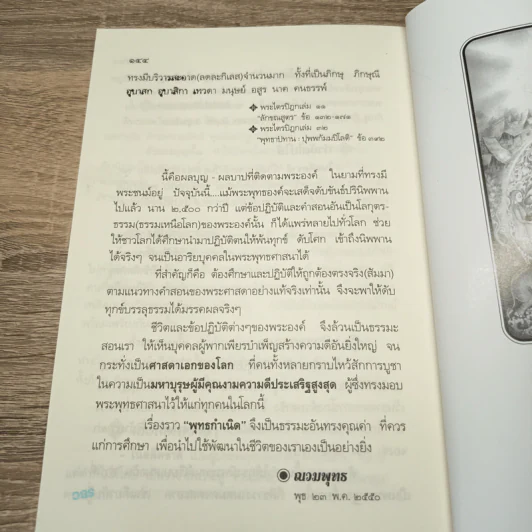 ๑๔๔
ทรงมีบริวารสะอาด(ลดละกิเลส)จำนวนมาก ทั้งที่เป็นภิกษุ ภิกษุณี
อุบาสก อุบาสิกา เทวดา มนุษย์ อสูร นาค คนธรรพ์
❖ พระไตรปิฎกเล่ม ๑๑
"ลักขณสูตร" ข้อ ๑๓๒-๑๗๑
❖ พระไตรปิฎกเล่ม ๓๒
"พุทธาปทาน : ปุพพกัมมปิโลติ" ข้อ ๓๙๒
นี้คือผลบุญ - ผลบาปที่ติดตามพระองค์ ในยามที่ทรงมี
พระชนม์อยู่ ปัจจุบันนี้....แม้พระพุทธองค์จะเสด็จดับขันธ์ปรินิพพาน
ไปแล้ว นาน ๒,๕๐๐ กว่าปี แต่ข้อปฏิบัติและคำสอนอันเป็นโลกุตร-
ธรรม(ธรรมเหนือโลก)ของพระองค์นั้น ก็ได้แพร่หลายไปทั่วโลก ช่วย
ให้ชาวโลกได้ศึกษานำมาปฏิบัติตนให้พ้นทุกข์ ดับโศก เข้าถึงนิพพาน
ได้จริงๆ จนเป็นอาริยบุคคลในพระพุทธศาสนาได้
ที่สำคัญก็คือ ต้องศึกษาและปฏิบัติให้ถูกต้องตรงจริง(สัมมา)
ตามแนวทางคำสอนของพระศาสดาอย่างแท้จริงเท่านั้น จึงจะพาให้ดับ
ทุกข์บรรลุธรรมได้มรรคผลจริงๆ
ชีวิตและข้อปฏิบัติต่างๆของพระองค์ จึงล้วนเป็นธรรมะ
สอนเรา ให้เห็นบุคคลผู้พากเพียรบำเพ็ญสร้างความดีอันยิ่งใหญ่ จน
กระทั่งเป็นศาสดาเอกของโลก ที่คนทั้งหลายกราบไหว้สักการบูชา
ในความเป็นมหาบุรุษผู้มีคุณงามความดีประเสริฐสูงสุด ผู้ซึ่งทรงมอบ
พระพุทธศาสนาไว้ให้แก่ทุกคนในโลกนี้
เรื่องราว "พุทธกำเนิด" จึงเป็นธรรมะอันทรงคุณค่า ที่ควร
แก่การศึกษา เพื่อนำไปใช้พัฒนาในชีวิตของเราเองเป็นอย่างยิ่ง
◉ ณวมพุทธ
พุธ ๒๓ พ.ค. ๒๕๕๐